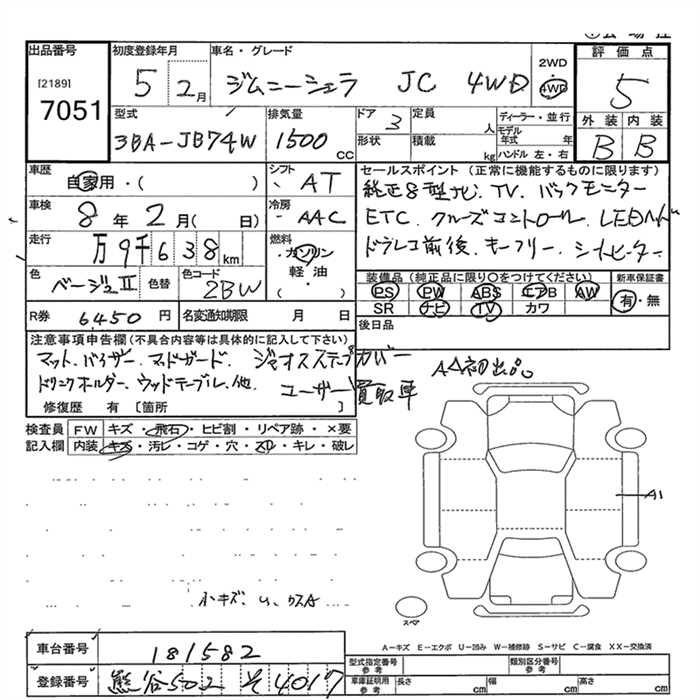 出品番号
[2189]
7051
初度登録年月
5 2月
車名・グレード
ジムニーシエラ JC 4WD
2WD
4WD
評価点
5
外装 内装
B B
型式
3BA-JB74W
排気量
1500 CC
ドア 3
形状
定員 人
積載 kg
ディーラー・並行
モデル年式 年
ハンドル 左・右
車歴
自家用・( )
シフト
AT
車検
8年 2月( 日)
冷房
AAC
走行
万 9千 6 3 8 km
燃料
ガソリン
軽油
( )
色
ベージュII
色替
色コード
2BW
R券 6,450 円
名変通知期限 月 日
セールスポイント (正常に機能するものに限ります)
純正8型ナビ. TV. バックモニター
ETC. クルーズコントロール. LEDヘッド
ドラレコ前後. キーフリー. シートヒーター
装備品(純正品に限り○をつけてください)
PS PW ABS エアB AW
SR ナビ TV カワ
新車保証書
有・無
後日品
注意事項申告欄(不具合内容等は具体的に記入して下さい)
マット. バイザー. マッドガード. ジャオスステップカバー
ドリンクホルダー. ウッドテーブル. 他. ユーザー買取車
修復歴 有 [箇所 ]
AA初出品
検査員記入欄
FW キズ・飛石・ヒビ割・リペア跡・×要
内装 キズ・汚レ・コゲ・穴・スレ・キレ・破レ
A1
小キズ.
スペア
A=キズ E=エクボ U=凹み W=補修跡 S=サビ C=腐食 XX=交換済
車台番号 181582
登録番号 熊谷502 そ 4017
型式指定番号 参考
類別区分番号 参考
車庫証明用 参考
長さ cm 幅 cm 高さ cm